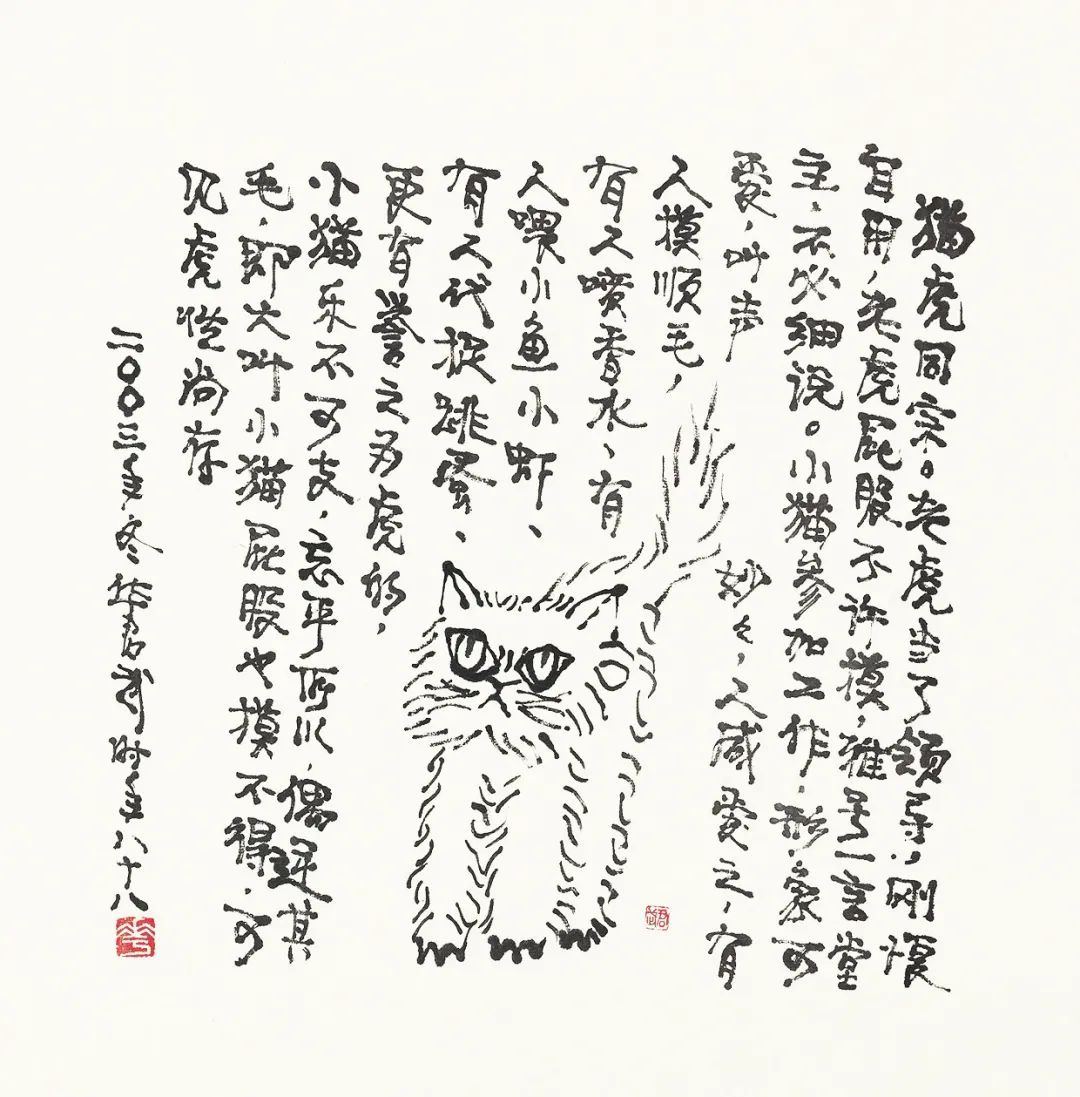 猫虎同宗。老虎当了领导，刚愎
自用，老虎屁股不许摸，雅号一言堂
主，不必细说。小猫参加工作，形象可
爱，叫声妙々，人咸爱之，有
人摸顺毛，
有人喷香水、有
人喂小鱼小虾、
有人代捉跳蚤、
更有誉之为虎的，
小猫乐不可支，忘乎所以，偶逆其
毛，即大叫小猫屁股也摸不得，可
见虎性尚存
二〇〇三年冬华君武时年八十八
华
君武